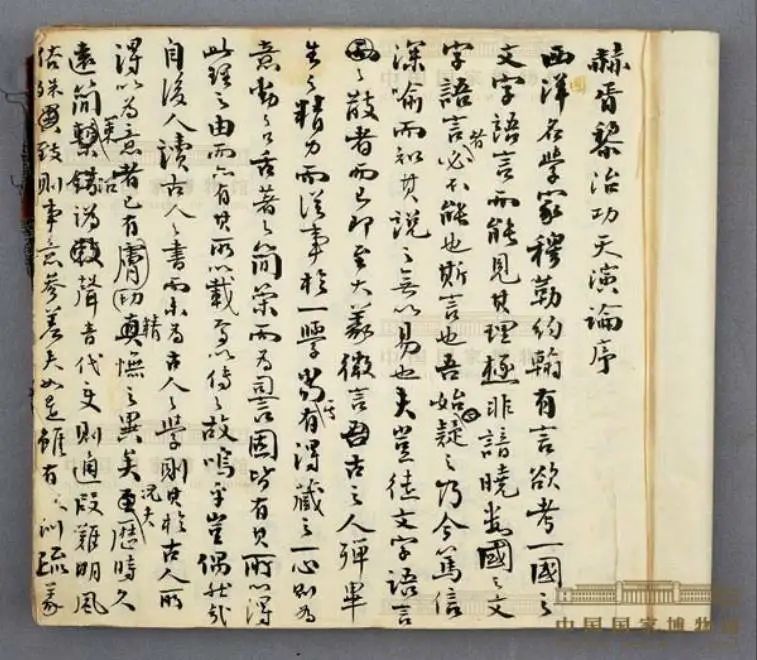 赫胥黎治功天演論序
西洋名學家穆勒約翰有言欲考一國之
文字語言而能見其理極非諳曉數國之文
字語言者必不能也斯言也吾始疑之乃今篤信
深喻而知其說之無以易也夫豈徒文字語言
之散者而已即至大義微言古之人殫畢
生之精力而從事於一學當有得藏之一心則為
意動之口舌著之簡策而為詞固皆有其所以得
此理之由而亦有其所以載焉以傳之故嗚乎豈偶然哉
自後人讀古人之書而未為古人之學則其於古人所
得以為意者已有膚切精真憮之異矣況夫更歷時久
遠簡錯譌聲音代變則通叚難明風
俗殊異致則事意參差夫如是雖有訓疏義
中国国家博物馆